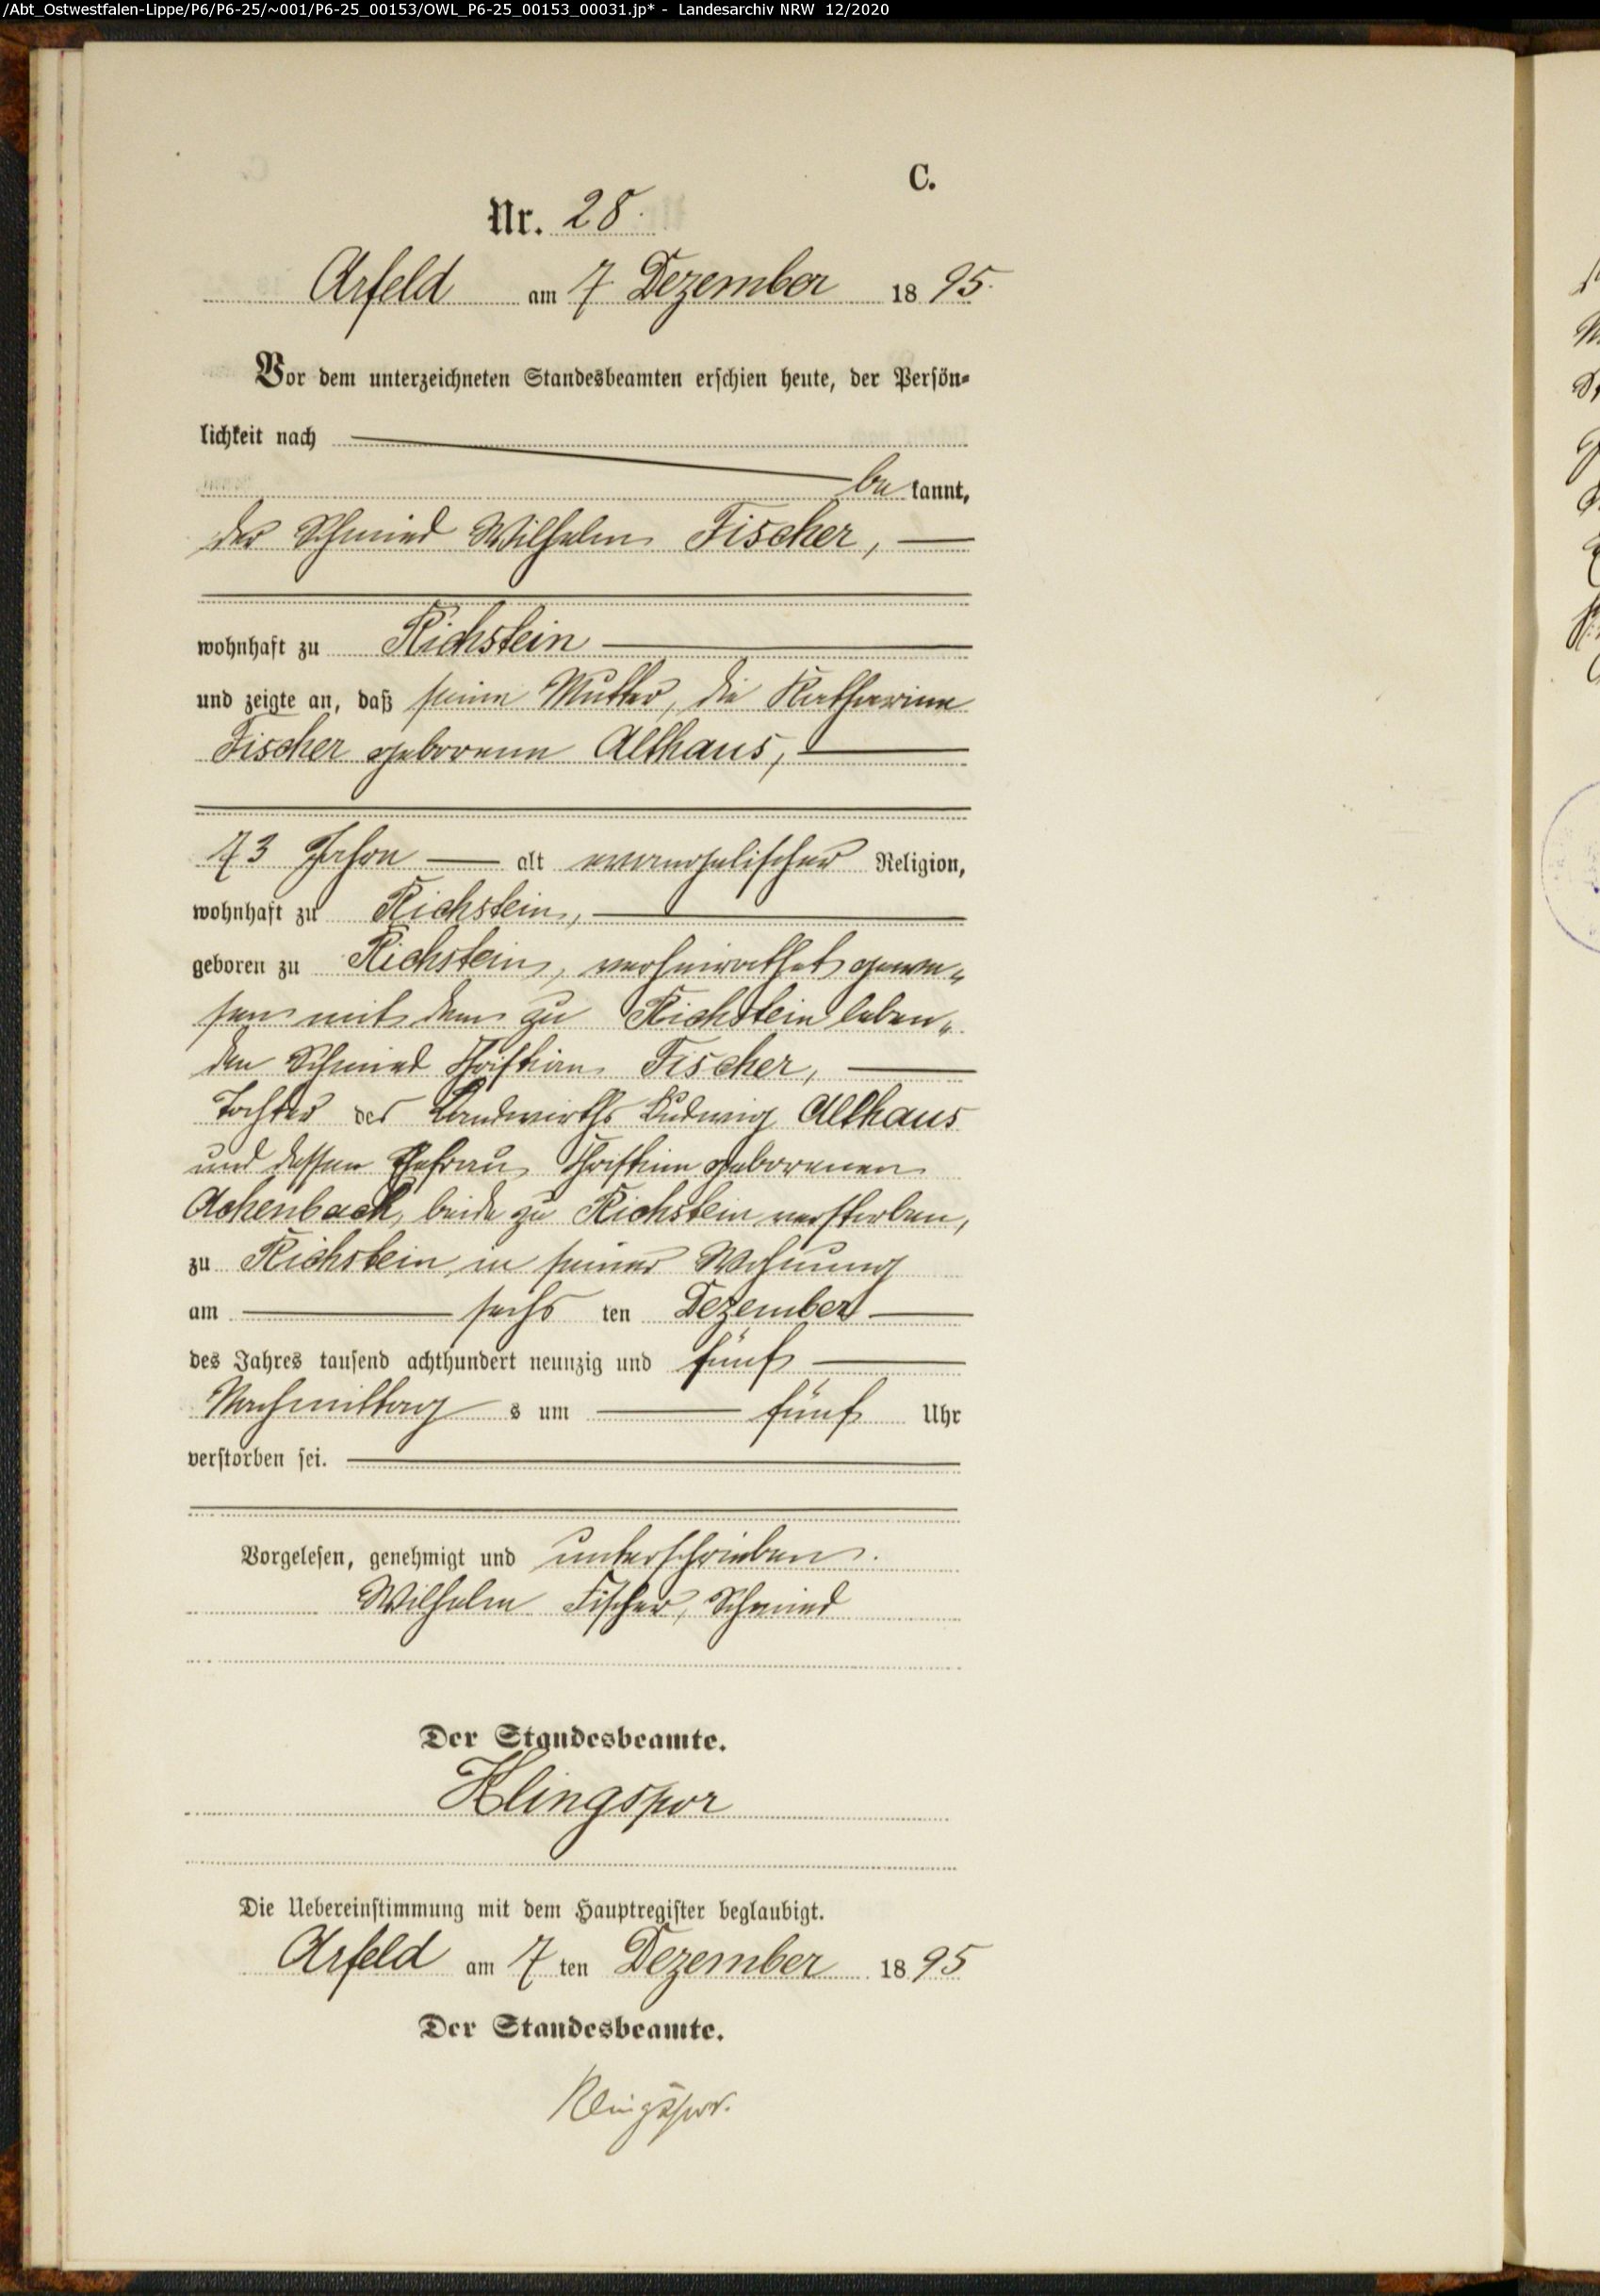 /Abt_Ostwestfalen-Lippe/P6/P6-25/~001/P6-25_00153/OWL_P6-25_00153_00031.jp* - Landesarchiv NRW 12/2020
C.
Nr. 28.
Arfeld am 7. Dezember 1895.
Vor dem unterzeichneten Standesbeamten erschien heute, der Persön-
lichkeit nach
bekannt,
der Schmied Wilhelm Fischer,
wohnhaft zu Richstein
und zeigte an, daß seine Mutter, die Katharine
Fischer geborenen Althaus,
73 Jahre alt evangelischer Religion,
wohnhaft zu Richstein,
geboren zu Richstein, verheirathet gewe-
sen mit dem zu Richstein leben-
den Schmied Christian Fischer,
Tochter des Landwirths Ludwig Althaus
und dessen Ehefrau Christine geborenen
Achenbach, beide zu Richstein verstorben,
zu Richstein in seiner Wohnung
am sechsten Dezember
des Jahres tausend achthundert neunzig und fünf
Nachmittags um fünf Uhr
verstorben sei.
Vorgelesen, genehmigt und unterschrieben.
Wilhelm Fischer, Schmied
Der Standesbeamte.
Klingspor
Die Uebereinstimmung mit dem Hauptregister beglaubigt.
Arfeld am 7ten Dezember 1895
Der Standesbeamte.
Klingspor.